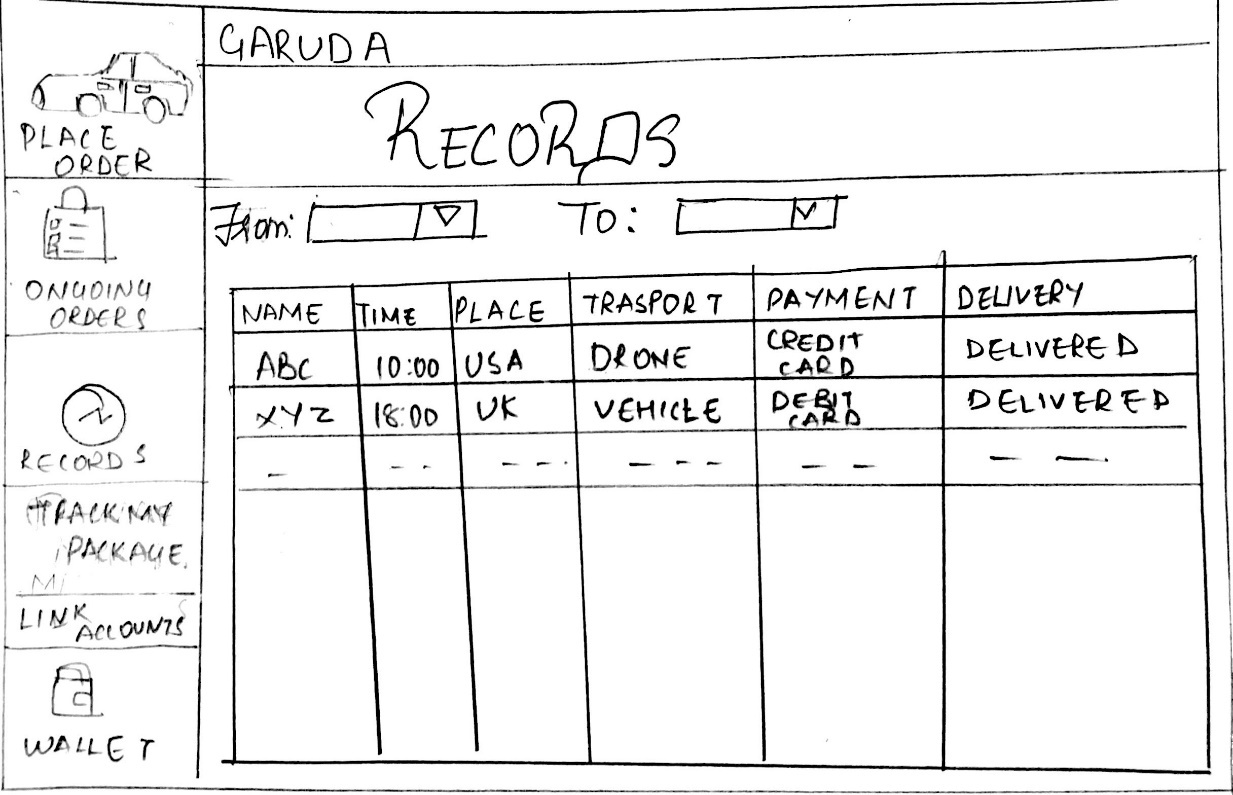 GARUDA
RECORDS
PLACE
ORDER
ONGOING
ORDERS
RECORDS
TRACK MY
PACKAGE.
LINK
ACCOUNTS
WALLET
From:
To:
NAME TIME PLACE TRASPORT PAYMENT DELIVERY
ABC 10:00 USA DRONE CREDIT CARD DELIVERED
XYZ 18:00 UK VEHICLE DEBIT CARD DELIVERED